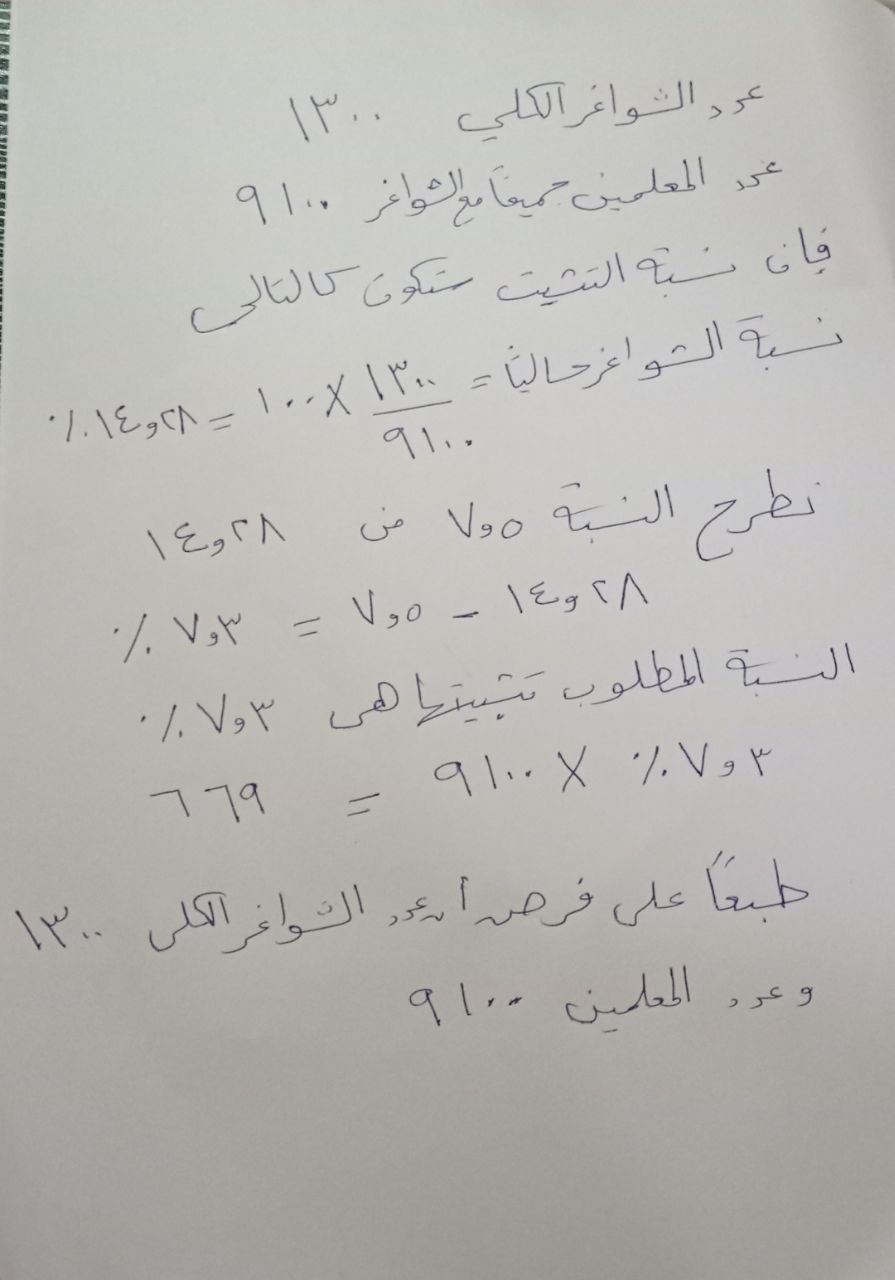 عدد الشواغر الكلي ١٣٠٠
عدد المعلمين جميعاً مع الشواغر ٩١٠٠
فإن نسبة التثبيت ستكون كالتالي
نسبة الشواغر حالياً = ١٣٠٠/٩١٠٠ × ١٠٠ = ١٤,٢٨٪
نطرح النسبة ٧,٥ من ١٤,٢٨
١٤,٢٨ - ٧,٥ = ٧,٣٪
النسبة المطلوب تثبيتها هي ٧,٣٪
٧,٣٪ × ٩١٠٠ = ٦٦٩
طبعاً على فرض أن عدد الشواغر الكلي ١٣٠٠
وعدد المعلمين ٩١٠٠